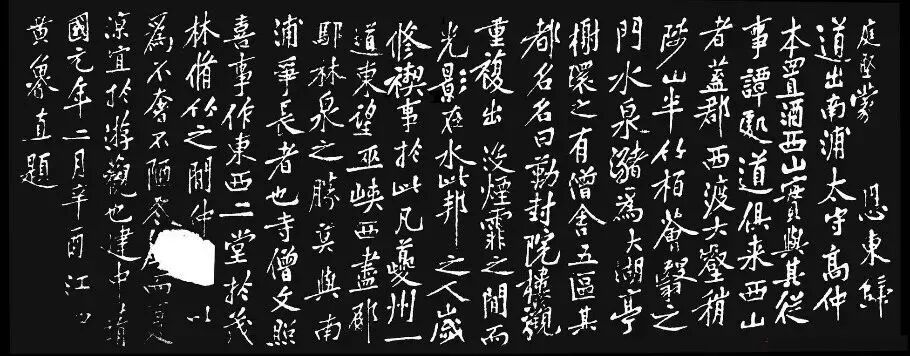 庭堅蒙 恩東歸
道出南浦太守高仲
本置酒西山實與其從
事譚處道俱來西山
者蓋郡西渡大壑稍
陟山半竹柏薈翳之
門水泉瀦為大湖亭
榭環之有僧舍五區其
都名名曰勤封院樓觀
重複出沒煙霏之間而
光影在水此邦之人歲
修禊事於此凡夔州一
道東望巫峽西盡郁
鄢林泉之勝莫與南
浦爭長者也寺僧文照
喜事作東西二堂於茂
林脩竹之間仲以
為不奢不陋冬而夏
涼宜於游觀也建中靖
國元年二月辛酉江
黃魯直題